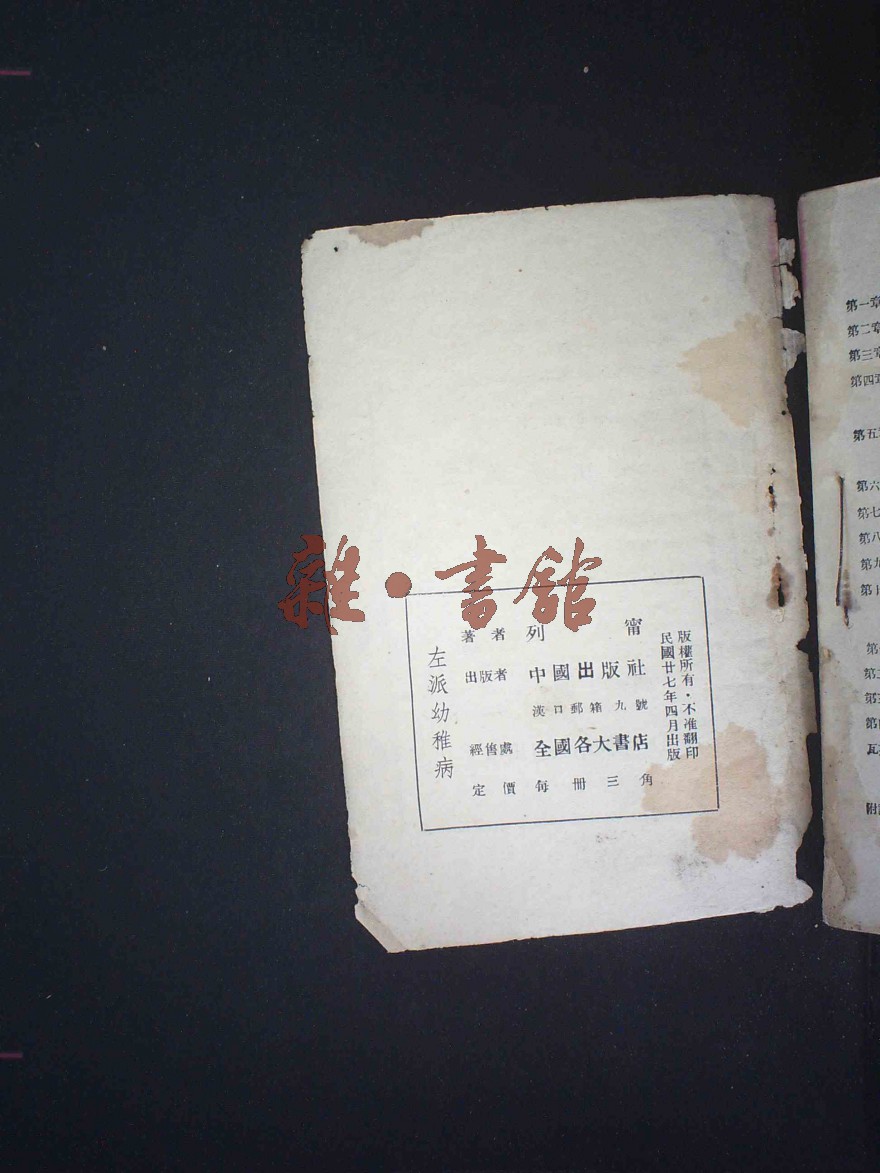 雜·書館
版權所有·不准翻印
民國廿七年四月出版
著者 列甯
出版者 中國出版社
漢口郵箱九號
經售處 全國各大書店
定價每冊三角
左派幼稚病
第一章
第二章
第三章
第四章
第五章
第六
第七
第八
第九
第十